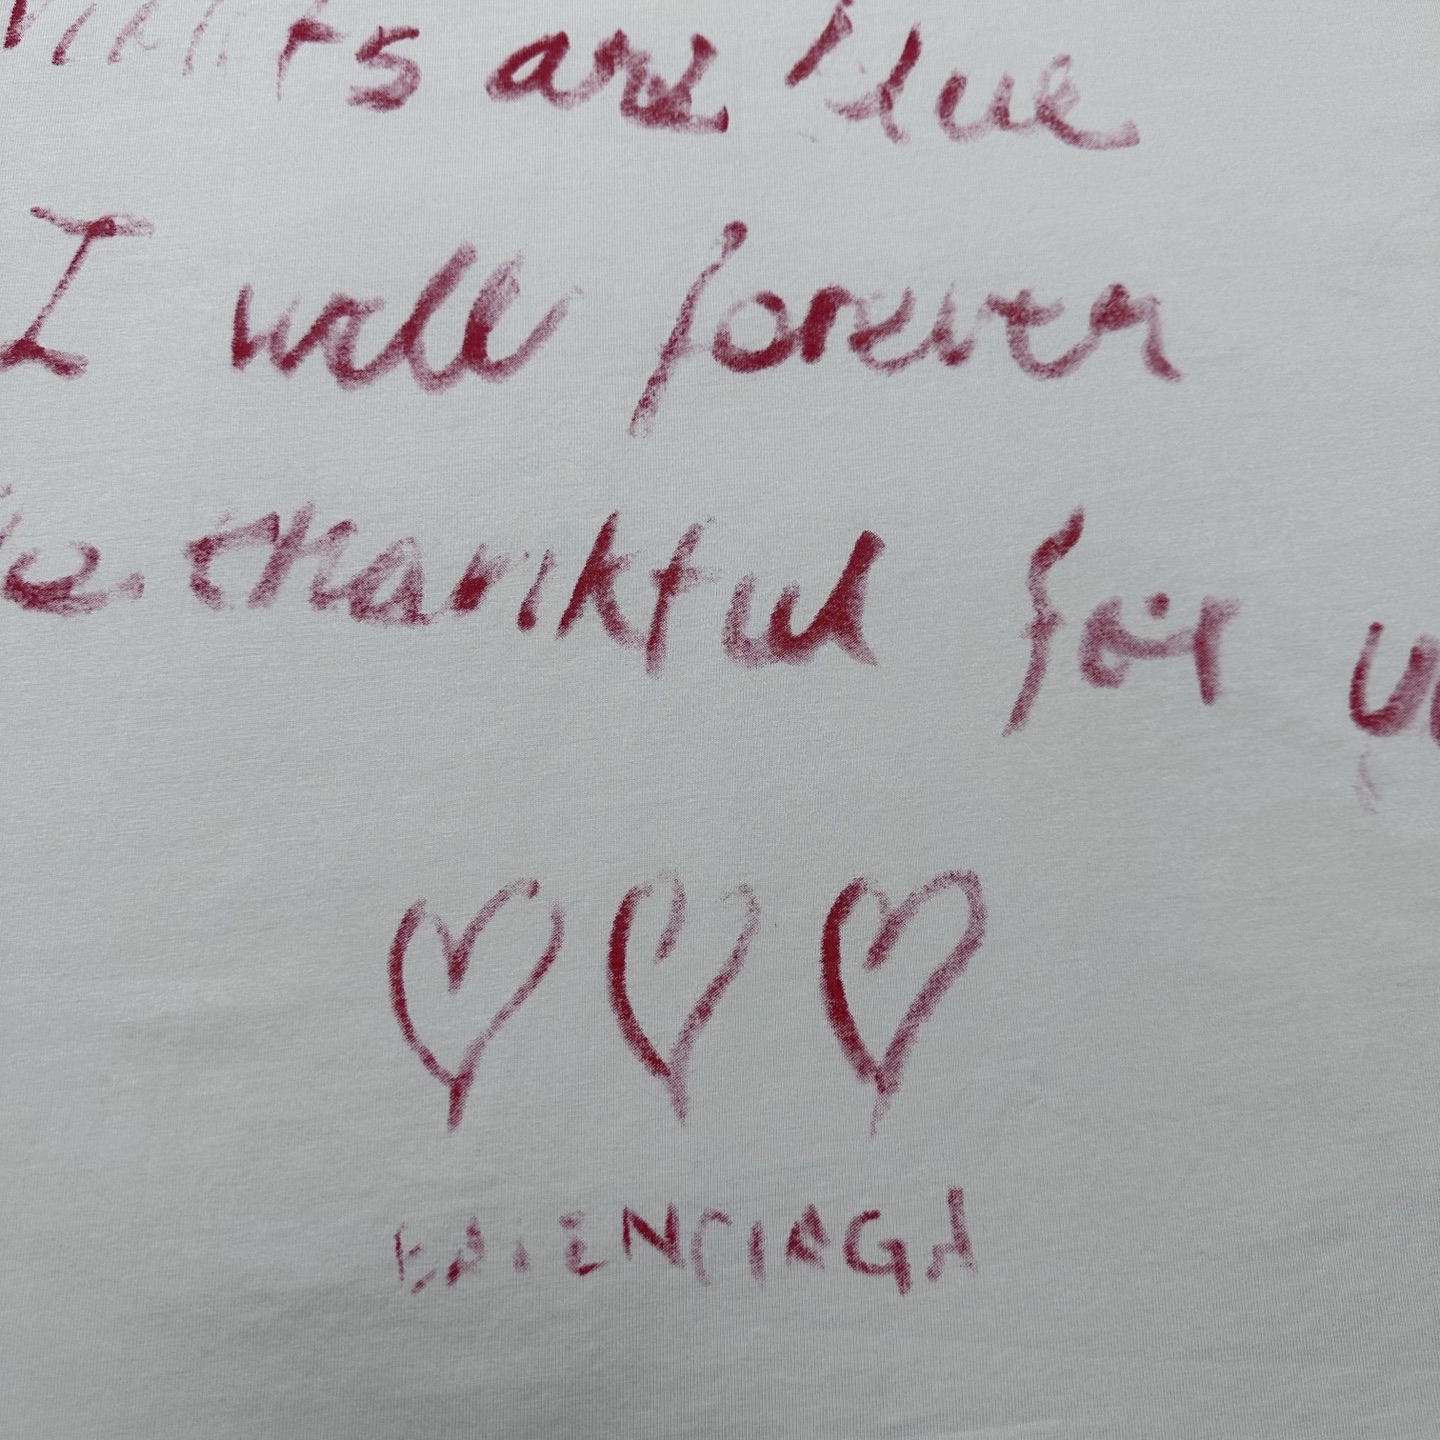 Violets are blue
I will forever
be thankful for
BALENCIAGA